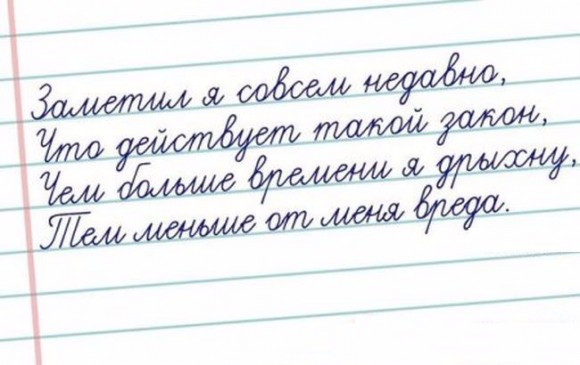 Заметил я совсем недавно,
Что действует такой закон,
Чем больше времени я дрыхну,
Тем меньше от меня вреда.